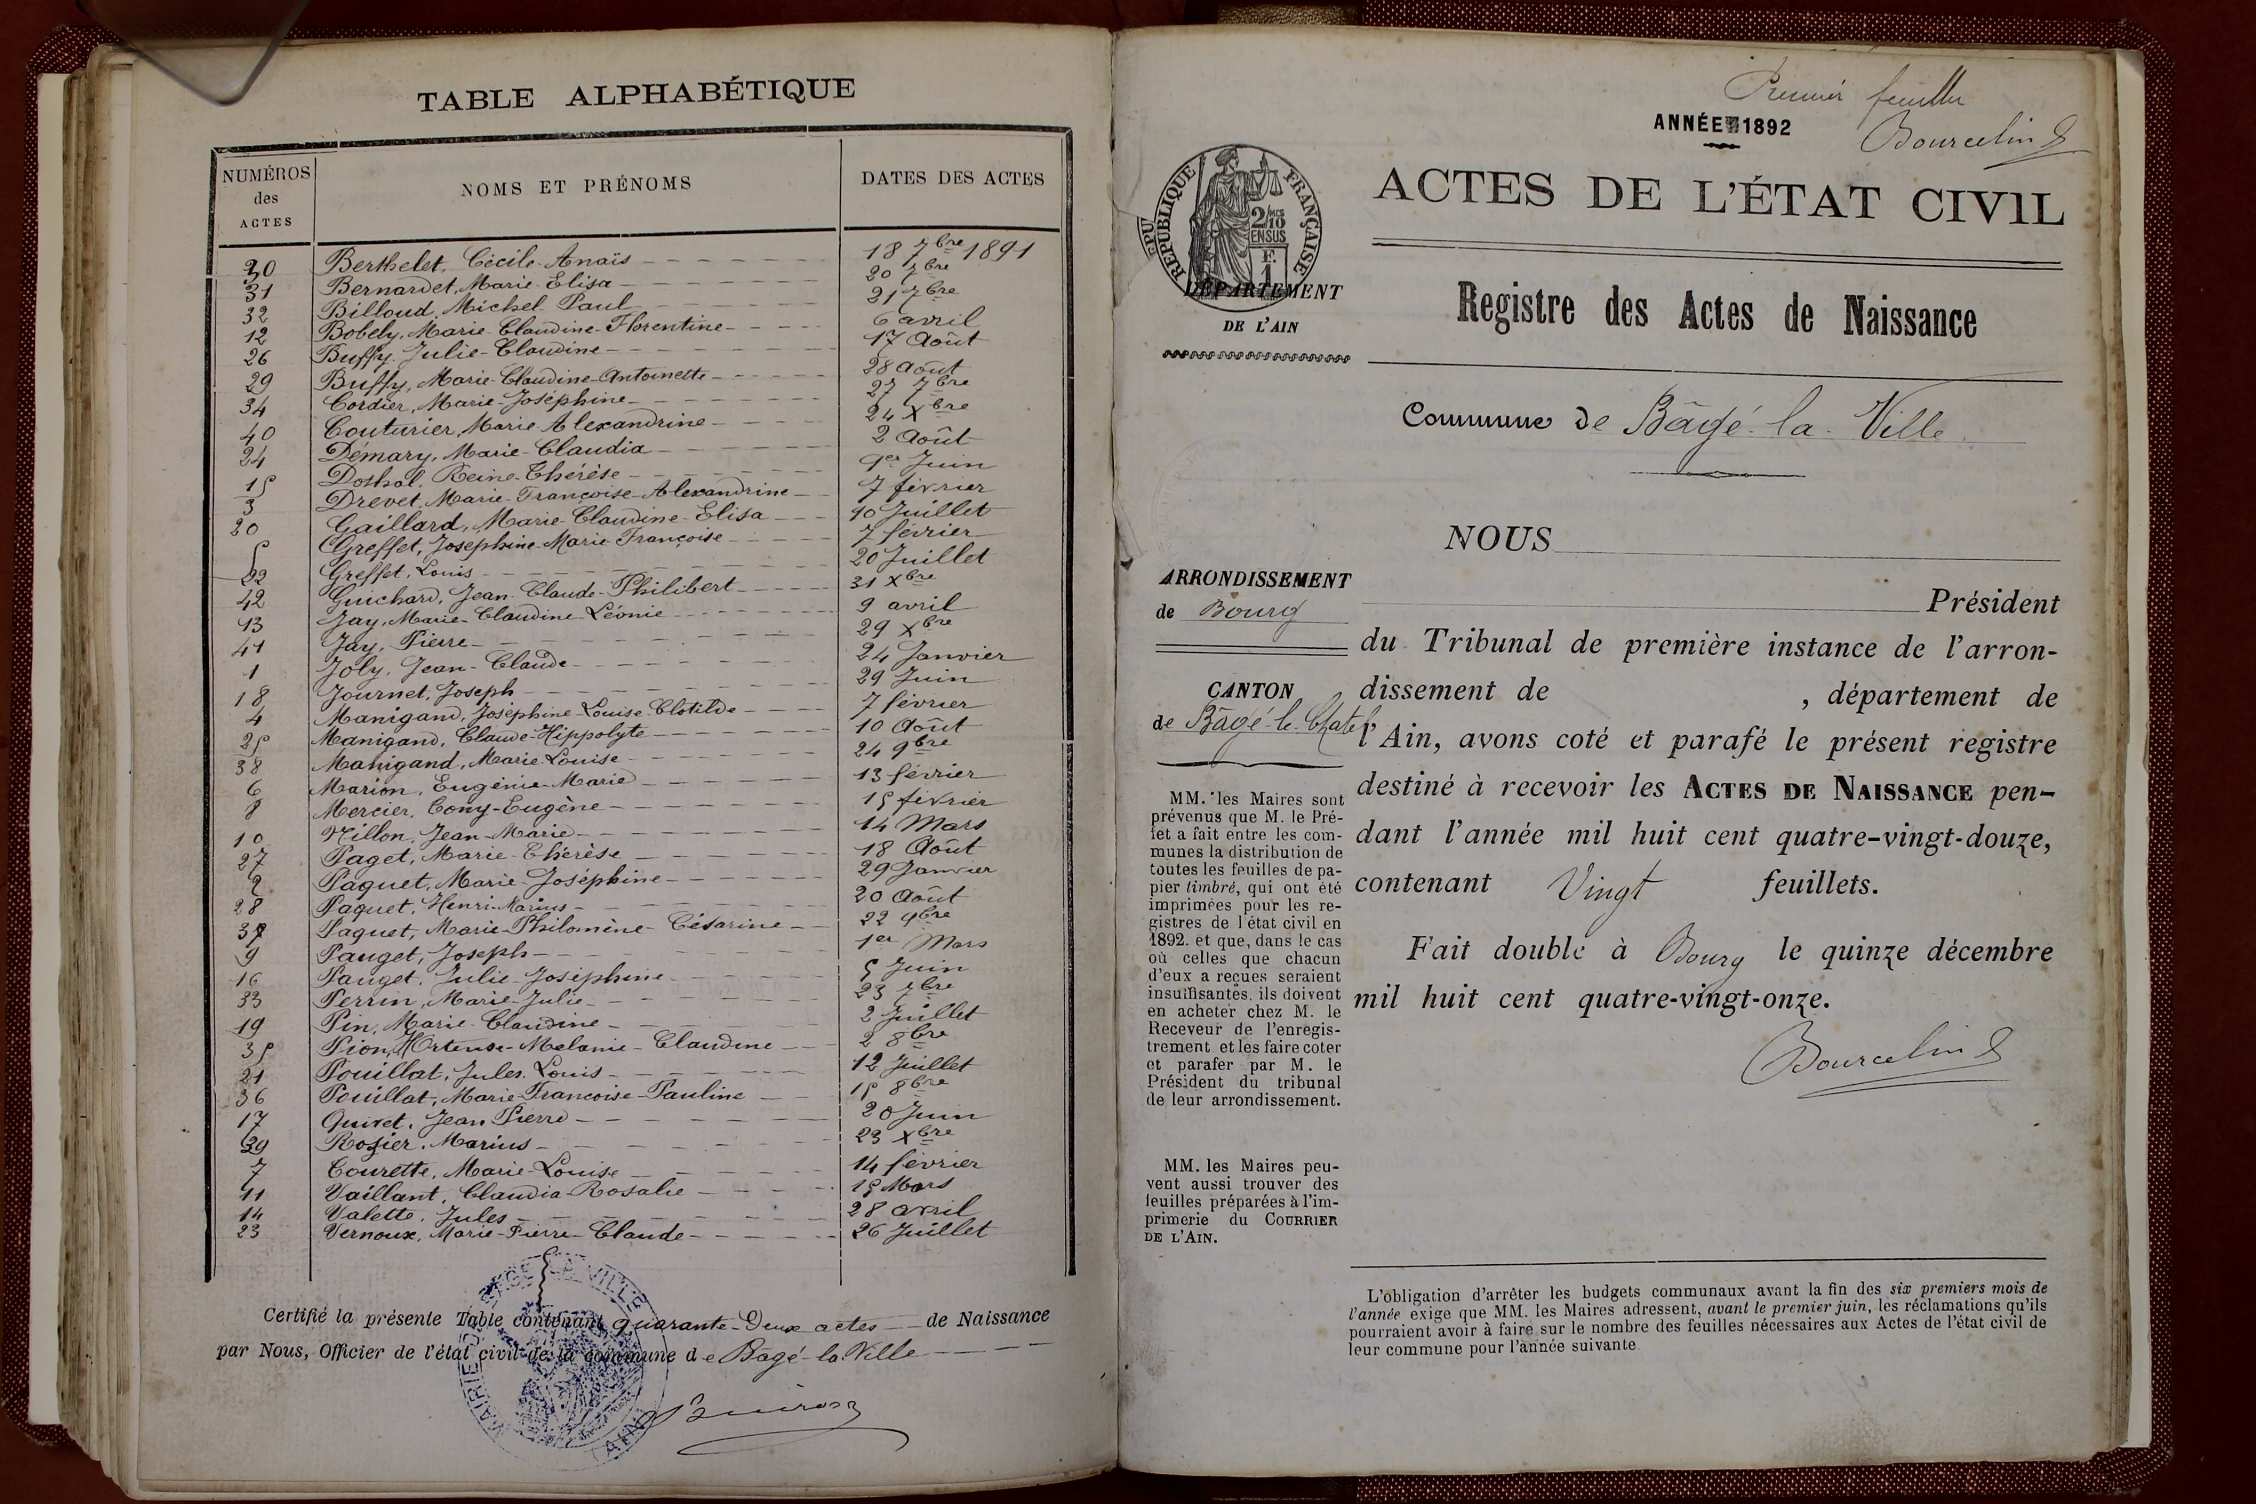 TABLE ALPHABÉTIQUE
NUMÉROS des ACTES NOMS ET PRÉNOMS DATES DES ACTES
30 Berthelet, Cécile-Anaïs 18 7bre 1891
31 Bernardet, Marie-Elisa 20 7bre
32 Billoud, Michel-Paul 21 7bre
12 Bobely, Marie-Claudine-Florentine 6 avril
26 Buffy, Julie-Claudine 17 Août
29 Buffy, Marie-Claudine-Antoinette 28 août
34 Cordier, Marie-Joséphine 27 7bre
40 Couturier, Marie Alexandrine 24 Xbre
24 Démary, Marie-Claudia 2 Août
15 Dothal, Reine-Thérèse 1er Juin
3 Drevet, Marie-Françoise-Alexandrine 7 février
20 Gaillard, Marie-Claudine-Elisa 10 Juillet
5 Greffet, Joséphine-Marie-Françoise 7 février
22 Greffet, Louis 20 Juillet
42 Guichard, Jean-Claude-Philibert 31 Xbre
13 Jay, Marie-Claudine-Léonie 9 avril
41 Jay, Pierre 29 Xbre
1 Joly, Jean-Claude 24 Janvier
18 Journet, Joseph 29 Juin
4 Manigand, Joséphine-Louise-Clotilde 7 février
25 Manigand, Claude-Hippolyte 10 Août
38 Manigand, Marie-Louise 24 9bre
6 Marion, Eugénie-Marie 13 février
8 Mercier, Cony-Eugène 15 février
10 Nillon, Jean-Marie 14 Mars
27 Paget, Marie-Thérèse 18 Août
2 Paquet, Marie-Joséphine 29 Janvier
28 Paquet, Henri-Marius 20 Août
37 Paquet, Marie-Philomène-Césarine 22 9bre
9 Pauget, Joseph 1er Mars
16 Pauget, Julie-Joséphine 5 Juin
33 Perrin, Marie-Julie 23 7bre
19 Pin, Marie-Claudine 2 Juillet
35 Pion, Hortense-Mélanie-Claudine 2 8bre
21 Pouillat, Jules-Louis 12 Juillet
36 Pouillat, Marie-Françoise-Pauline 15 8bre
17 Quivet, Jean Pierre 20 Juin
39 Rozier, Marius 23 Xbre
7 Tourette, Marie-Louise 14 février
11 Vaillant, Claudia-Rosalie 15 Mars
14 Valette, Jules 28 avril
23 Vernoux, Marie-Pierre-Claude 26 Juillet
Certifié la présente Table contenant quarante-Deux actes de Naissance
par Nous, Officier de l'état civil de la commune de Bagé-la-Ville
MAIRIE DE BAGÉ LA VILLE (AIN)
Premier feuillet
Bourcelin
ANNÉE 1892
RÉPUBLIQUE FRANÇAISE
2/10 EN SUS
ACTES DE L'ÉTAT CIVIL
DÉPARTEMENT
DE L'AIN
Registre des Actes de Naissance
Commune de Bâgé-la-Ville
NOUS
ARRONDISSEMENT
de Bourg
CANTON
de Bâgé-le-Châtel
MM. les Maires sont
prévenus que M. le Pré-
fet a fait entre les com-
munes la distribution de
toutes les feuilles de pa-
pier timbré, qui ont été
imprimées pour les re-
gistres de l'état civil en
1892. et que, dans le cas
où celles que chacun
d'eux a reçues seraient
insuffisantes, ils doivent
en acheter chez M. le
Receveur de l'enregis-
trement et les faire coter
et parafer par M. le
Président du tribunal
de leur arrondissement.
MM. les Maires peu-
vent aussi trouver des
feuilles préparées à l'im-
primerie du COURRIER
DE L'AIN.
Président
du Tribunal de première instance de l'arron-
dissement de , département de
l'Ain, avons coté et parafé le présent registre
destiné à recevoir les ACTES DE NAISSANCE pen-
dant l'année mil huit cent quatre-vingt-douze,
contenant Vingt feuillets.
Fait double à Bourg le quinze décembre
mil huit cent quatre-vingt-onze.
Bourcelin
L'obligation d'arrêter les budgets communaux avant la fin des six premiers mois de
l'année exige que MM. les Maires adressent, avant le premier juin, les réclamations qu'ils
pourraient avoir à faire sur le nombre des feuilles nécessaires aux Actes de l'état civil de
leur commune pour l'année suivante